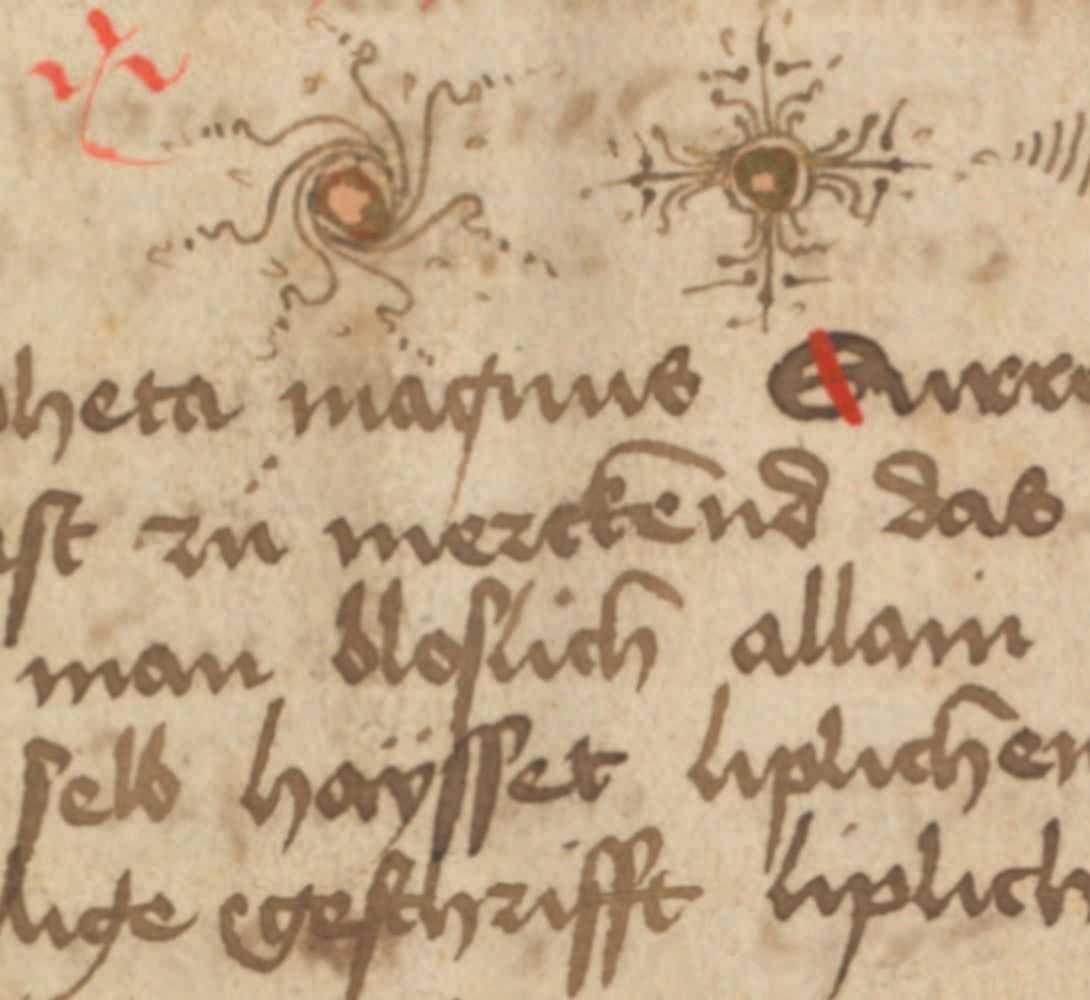 pheta magnus Surre
ist zu merckend das
man bloslich allain
selb haÿsset liplichen
lige geschrifft liplich